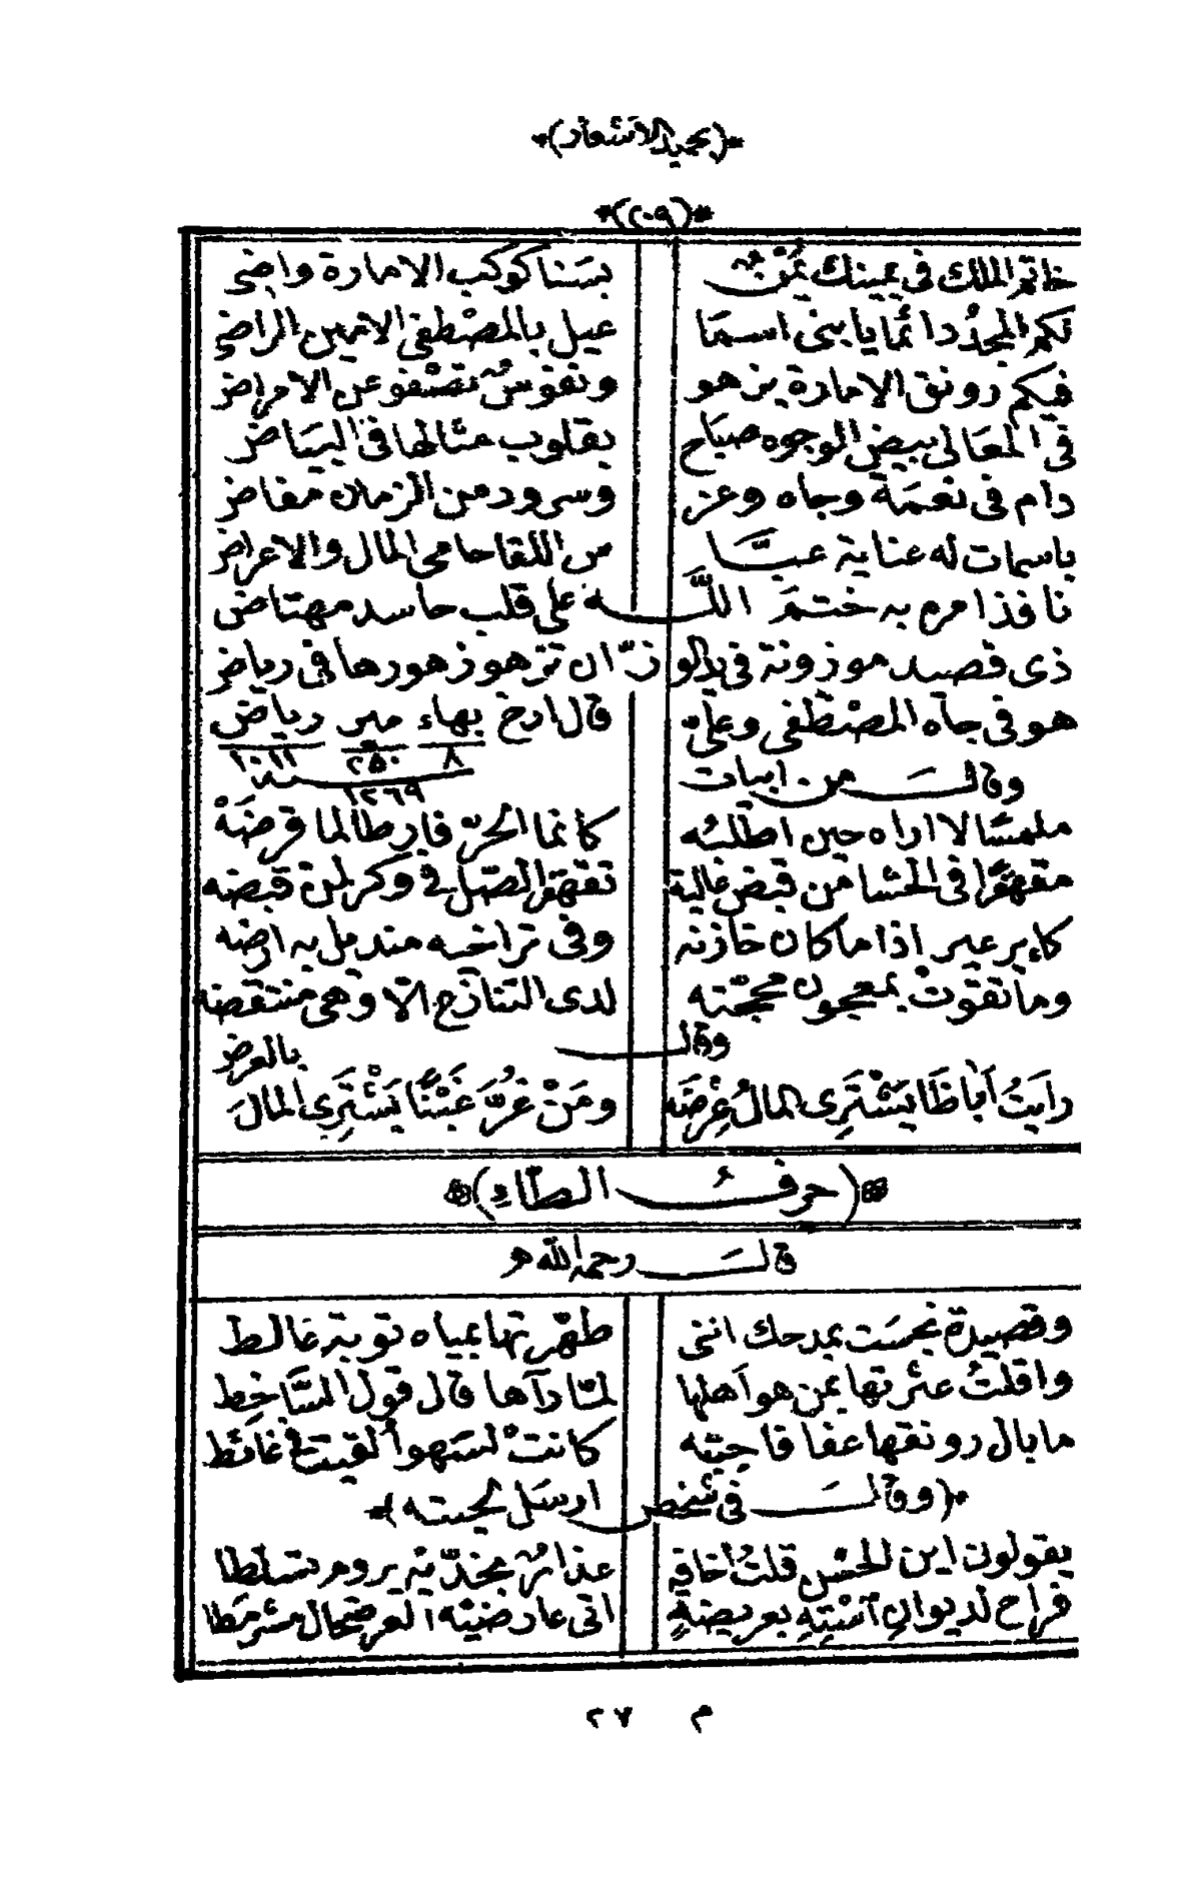 *(بحميد الاشعار)*
*(٢٠٩)*
خاتم الملك في يمينك يُمْنٌ بسَنا كوكب الامارة واضى
لكم المجد دائما يا بني اسما عيل بالمصْطفى الامين الراضي
فيكم رونق الامارة يزهو ونفوسٌ تصْفو عن الامراض
في المعالي بيض الوجوه صباح بقلوب مثالها في البيَاض
دام في نعمَة وجاه وعز وسرور من الزمان مفاض
باسمات له عناية عبَّا س اللقا حامي المال والاعراض
نافذ امره به ختمَ اللَّه على قلب حاسد مهتاض
ذي قصيد موزونة في بدا لو زّان تزهو زهورها في رياض
هو في جاه المصْطفى وعليّ قال ارخ بهاء مير رياض
٨ ٢٥٠ ١٠١١
سنة ١٢٦٩
وقالَ من ابيات
ملمسَا لا اراه حين اطلبُه كانما الحرّ فارطا لما قرضَهْ
مقهقرًا في الحشا من قبض غالية تقهقر الصّل في وكر لمن قبضه
كاء برعير اذا ما كان خازنه وفي تراخيه مندمل به ارضه
وما تقوت بمعجون محجّته لدى التنازع الّا وهي منتقضه
وقال
رايتُ اَباظَا يَشْتَرِي المالُ عِرْضَه ومَنْ غُرَّ غَبْنًا يَشْتَرِي المالَ بالعرض
(حرفُ الطاء)
قالَ رحمه الله
وقصيدة نجسَت بمدحك انني طهّرتها بمياه توبة غالط
واقلتُ عثرتها بمن هو اَهلها لمّا رآها قال قول السَّاخط
ما بال رونقها عفا فاجبته كانتْ لسَهو أُلقيت في غائط
*(وقالَ في شخص ارسَل لحيته)*
يقولون اين الحسْن قلتُ اخافه عذارٌ بخدّيه يروم تسَلطا
فراح لديوانِ آسْتِهِ بعريضةٍ اتى عارضيْه العرضحال مشرمَطا
م ٢٧